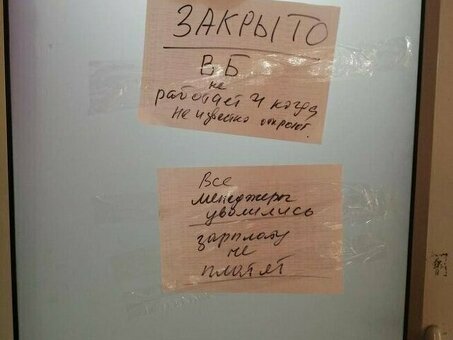 ЗАКРЫТО
ВБ
не
работает и когда
не известно откроют.
Все
менеджеры
уволились
зарплату
не
платят